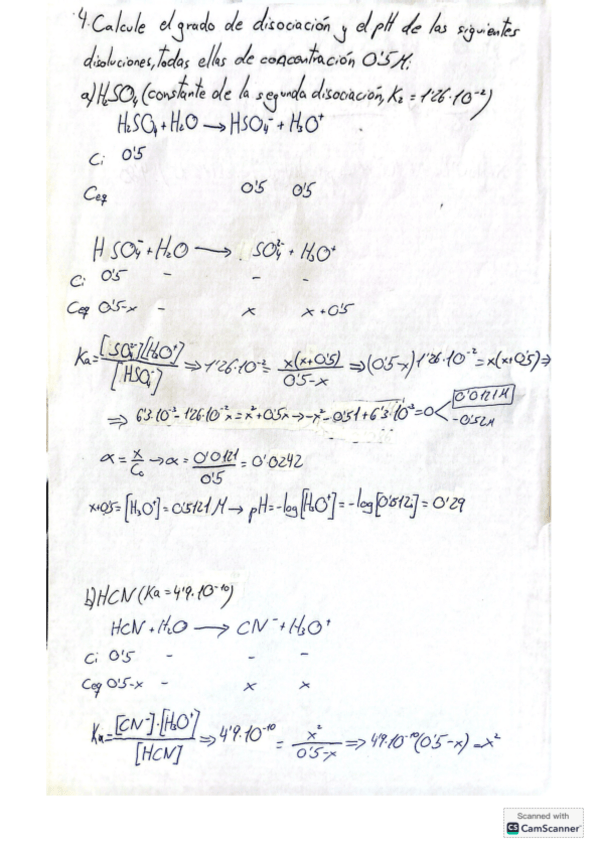 4. Calcule el grado de disociación y el pH de las siguientes
disoluciones, todas ellas de concentración 0'5 M:
a) H₂SO₄ (constante de la segunda disociación, K₂ = 1'26·10⁻²)
H₂SO₄ + H₂O → HSO₄⁻ + H₃O⁺
Ci 0'5
Ceq 0'5 0'5
HSO₄⁻ + H₂O → SO₄²⁻ + H₃O⁺
Ci 0'5 - - -
Ceq 0'5-x - x x+0'5
Ka = [SO₄²⁻][H₃O⁺] / [HSO₄⁻] ⇒ 1'26·10⁻² = x(x+0'5) / 0'5-x ⇒ (0'5-x) 1'26·10⁻² = x(x+0'5) ⇒
⇒ 6'3·10⁻³ - 1'26·10⁻²x = x² + 0'5x → -x² - 0'51 + 6'3·10⁻³ = 0 < 0'0121 M
-0'52 M
α = x / C₀ → α = 0'0121 / 0'5 = 0'0242
x+0'5 = [H₃O⁺] = 0'5121 M → pH = -log[H₃O⁺] = -log[0'512] = 0'29
b) HCN (Ka = 4'9·10⁻¹⁰)
HCN + H₂O → CN⁻ + H₃O⁺
Ci 0'5 - - -
Ceq 0'5-x - x x
Ka = [CN⁻]·[H₃O⁺] / [HCN] ⇒ 4'9·10⁻¹⁰ = x² / 0'5-x ⇒ 4'9·10⁻¹⁰(0'5-x) = x²
Scanned with
CS CamScanner